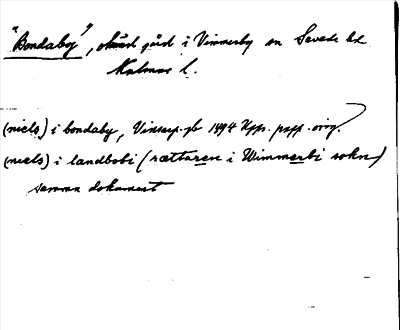 "Bondaby", okänd gård i Vimmerby sn Sevede hd
Kalmar l.
(niels) i bondaby, Vinstorp. gb 1494 Kpr. papp. orig.
(niels) i landbobi (rættaren i Wimmerbi sokn)
samma dokument